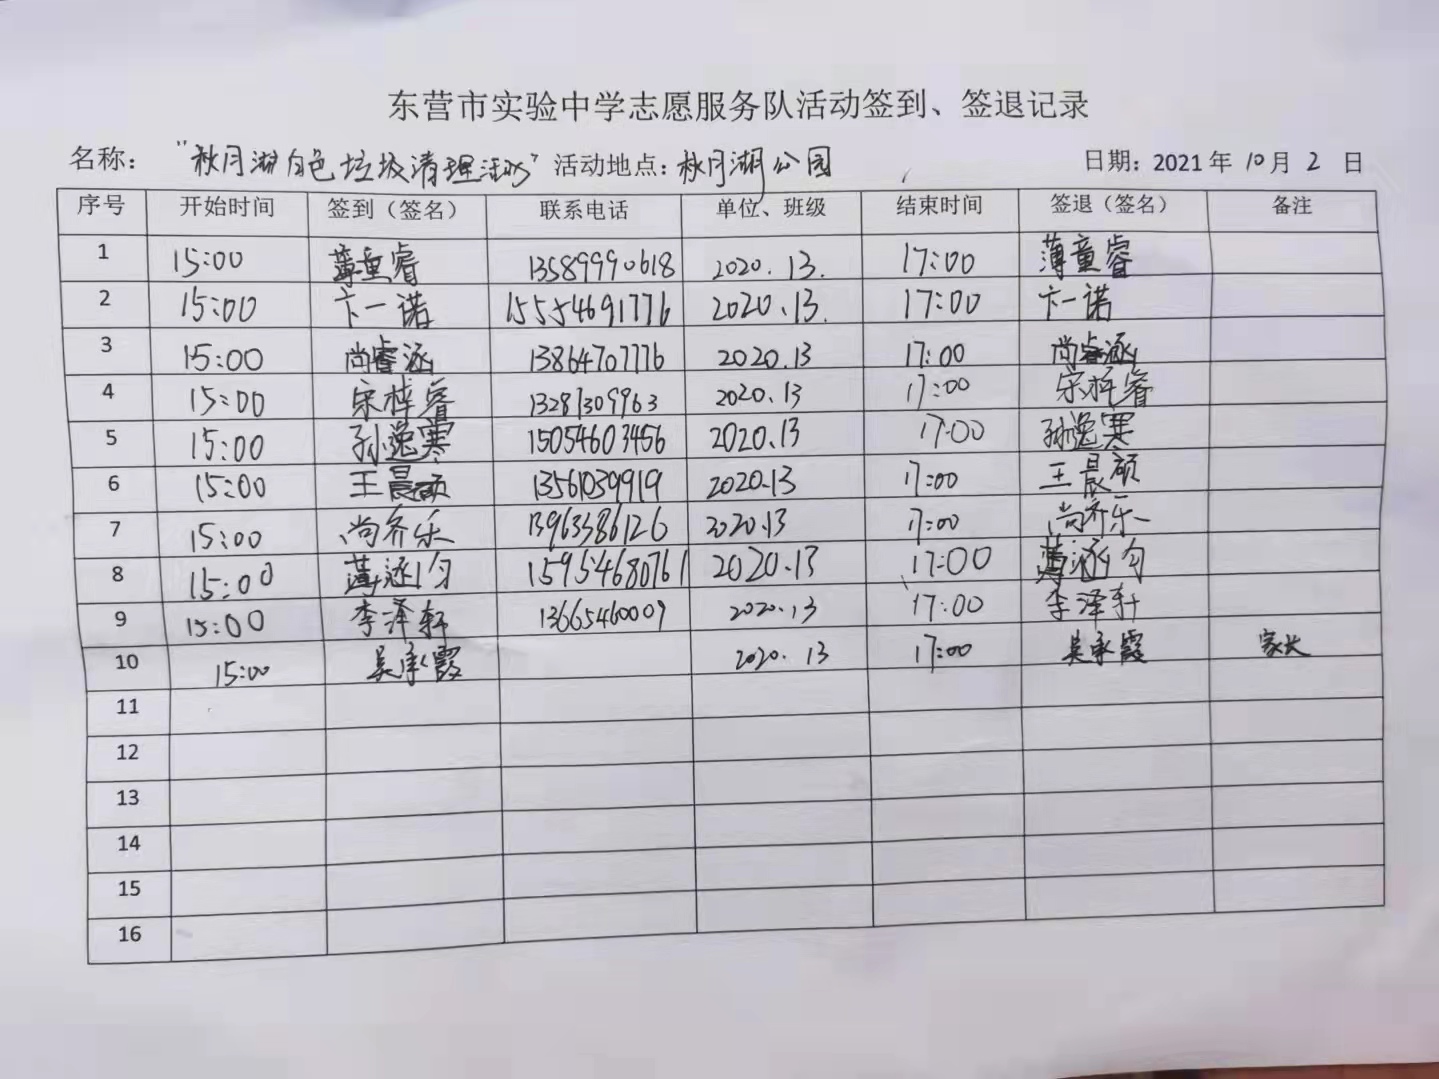 东营市实验中学志愿服务队活动签到、签退记录
名称： “秋月湖白色垃圾清理活动” 活动地点：秋月湖公园 日期：2021年10月2日
序号 开始时间 签到（签名） 联系电话 单位、班级 结束时间 签退（签名） 备注
1 15:00 薄童睿 13589990618 2020.13. 17:00 薄童睿
2 15:00 卞一诺 15554691776 2020.13. 17:00 卞一诺
3 15:00 尚睿涵 13864707776 2020.13 17:00 尚睿涵
4 15:00 宋梓睿 13281309963 2020.13 17:00 宋梓睿
5 15:00 孙逸寒 15054603456 2020.13 17:00 孙逸寒
6 15:00 王晨硕 13561039919 2020.13 17:00 王晨硕
7 15:00 尚齐乐 13963386126 2020.13 17:00 尚齐乐
8 15:00 涵均 15954680761 2020.13 17:00 涵均
9 15:00 李泽轩 13665460009 2020.13 17:00 李泽轩
10 15:00 吴承霞 2020.13 17:00 吴承霞 家长
11
12
13
14
15
16